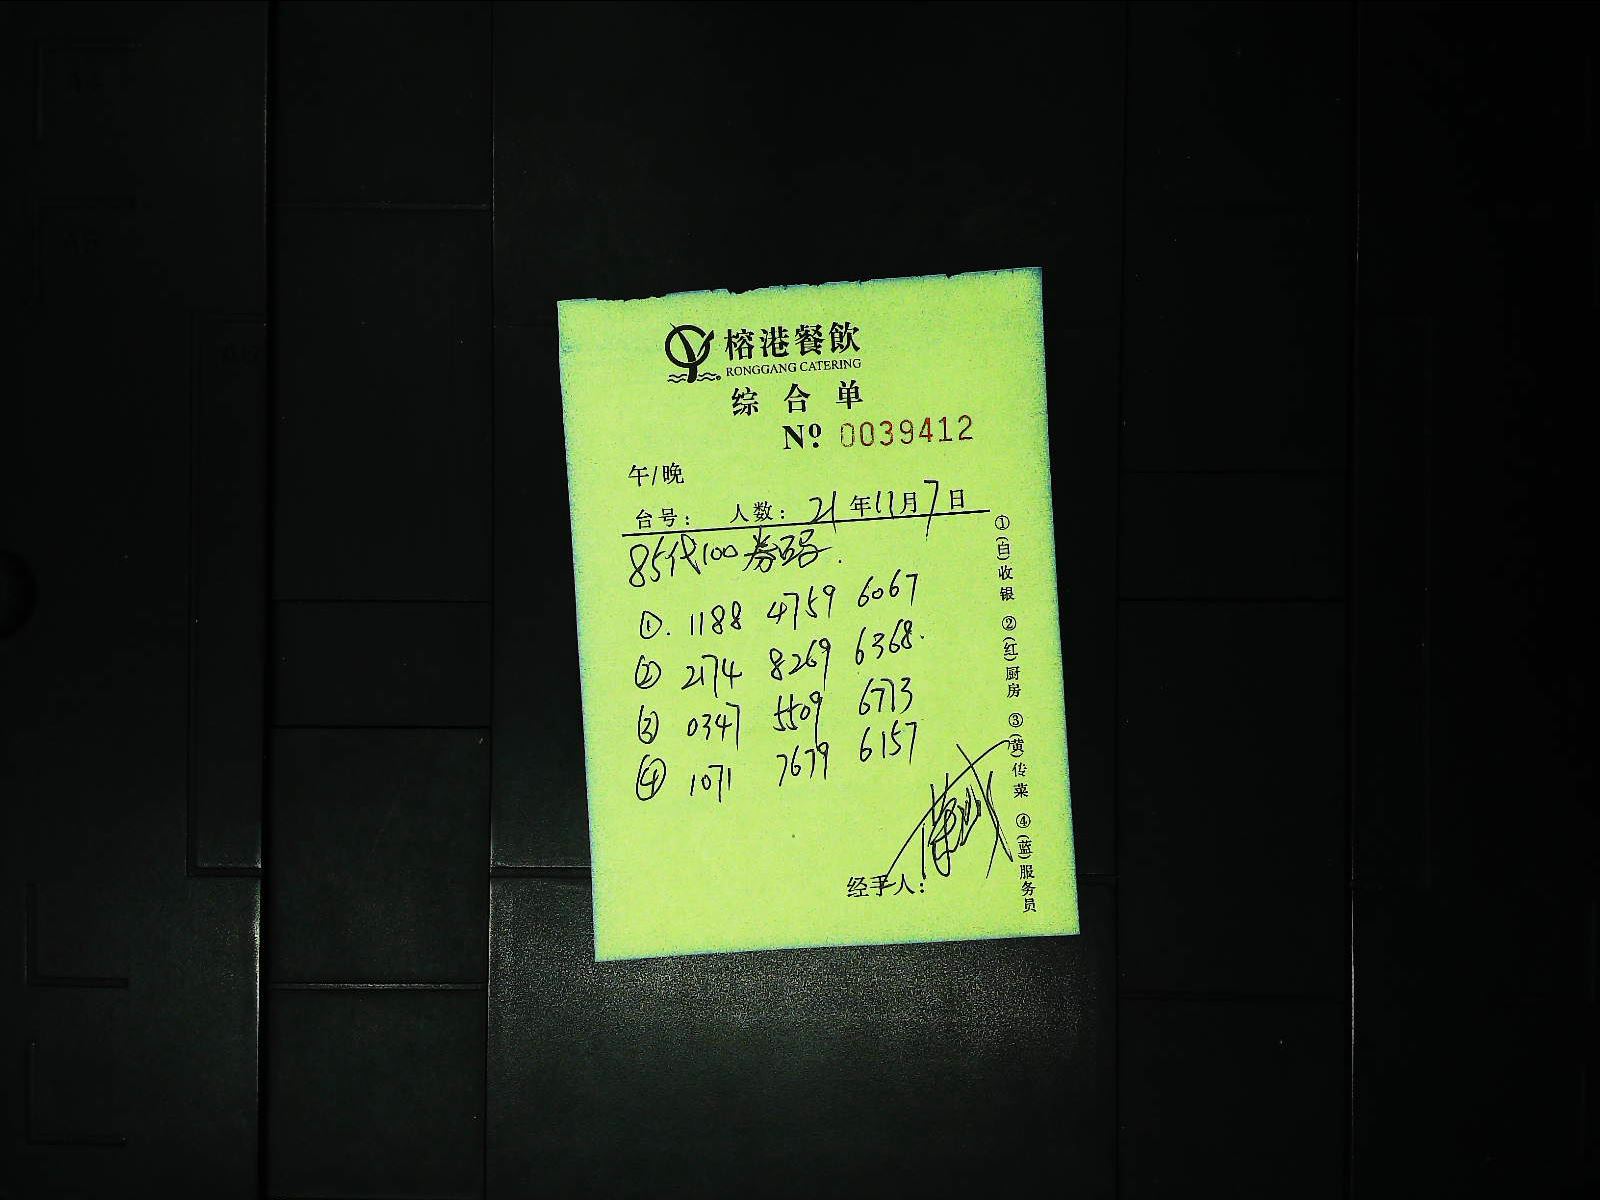 榕港餐飲
RONGGANG CATERING
综合单
Nº 0039412
午/晚
台号: 人数: 21年11月7日
85代100券码.
①. 1188 4759 6067
② 2174 8269 6368.
③ 0347 5509 6773
④ 1071 7679 6157
经手人:
①(白)收银 ②(红)厨房 ③(黄)传菜 ④(蓝)服务员